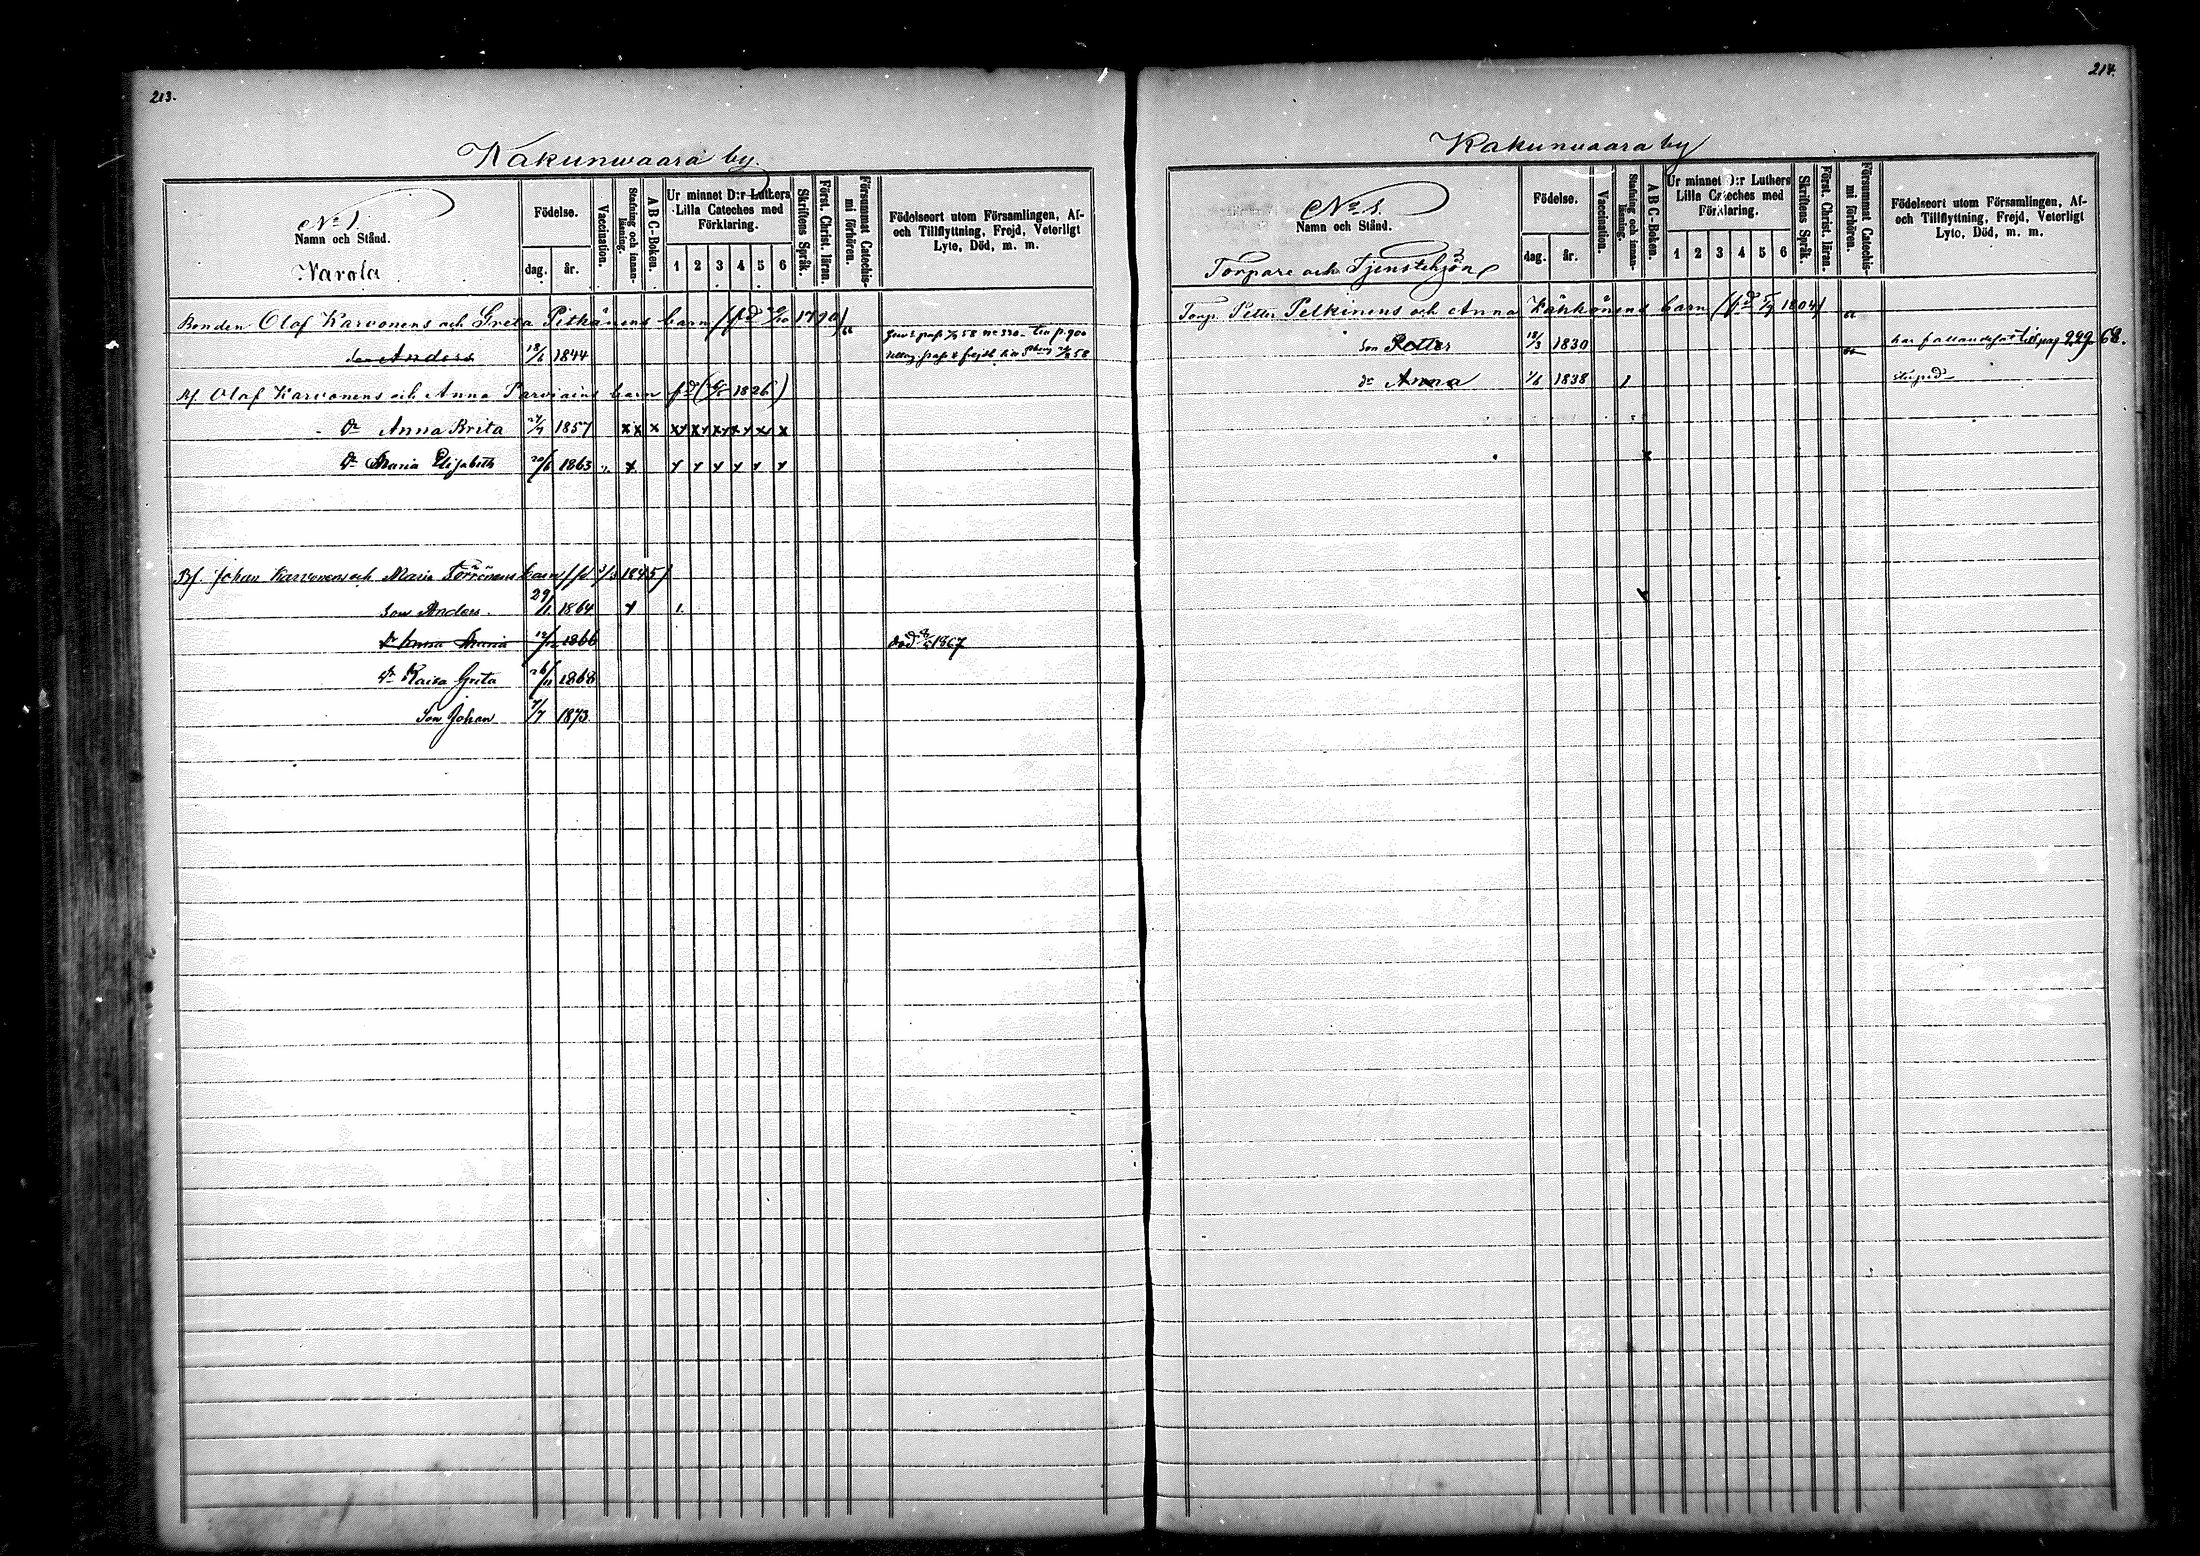 213.
Kakunwaara by.
No 1.
Namn och Stånd.
Varola
Födelse.
dag. år.
Vaccination.
Stafning och innan-läsning.
A B C-Boken.
Ur minnet D:r Luthers Lilla Cateches med Förklaring.
1 2 3 4 5 6
Skriftens Språk.
Först. Christ. läran.
Försummat Catechis-mi förhören.
Födelseort utom Församlingen, Af- och Tillflyttning, Frejd, Veterligt Lyte, Död, m. m.
Bonden Olof Karvonens och Greta Pitkänens barn 1790)
Son Anders 18/6 1844
Bf Olof Karvonens och Anna Parviains barn 1826)
Dr Anna Brita 1857 x x x x x x x x x
Dr Maria Elisabeth 20/6 1863 x x x x x x x
Bf. Johan Karvonens och Maria Törrönens barn 1845)
Son Anders. 29/11 1864 x 1.
Dr Anna Maria 12/12 1866 död 1867
Dr Kaisa Greta 26/11 1868
Son Johan 7/7 1873.
214.
Kakunvaara by
No 1.
Namn och Stånd.
Torpare och Tjenstehjon
Födelse.
dag. år.
Vaccination.
Stafning och innan-läsning.
A B C-Boken.
Ur minnet D:r Luthers Lilla Cateches med Förklaring.
1 2 3 4 5 6
Skriftens Språk.
Först. Christ. läran.
Försummat Catechis-mi förhören.
Födelseort utom Församlingen, Af- och Tillflyttning, Frejd, Veterligt Lyte, Död, m. m.
Torp. Petter Pelkinens och Anna Kähkönens barn 1804)
Son Petter 18/3 1830 har fallandesot till pag 229 68.
dr Anna 1/6 1838 1 stupid